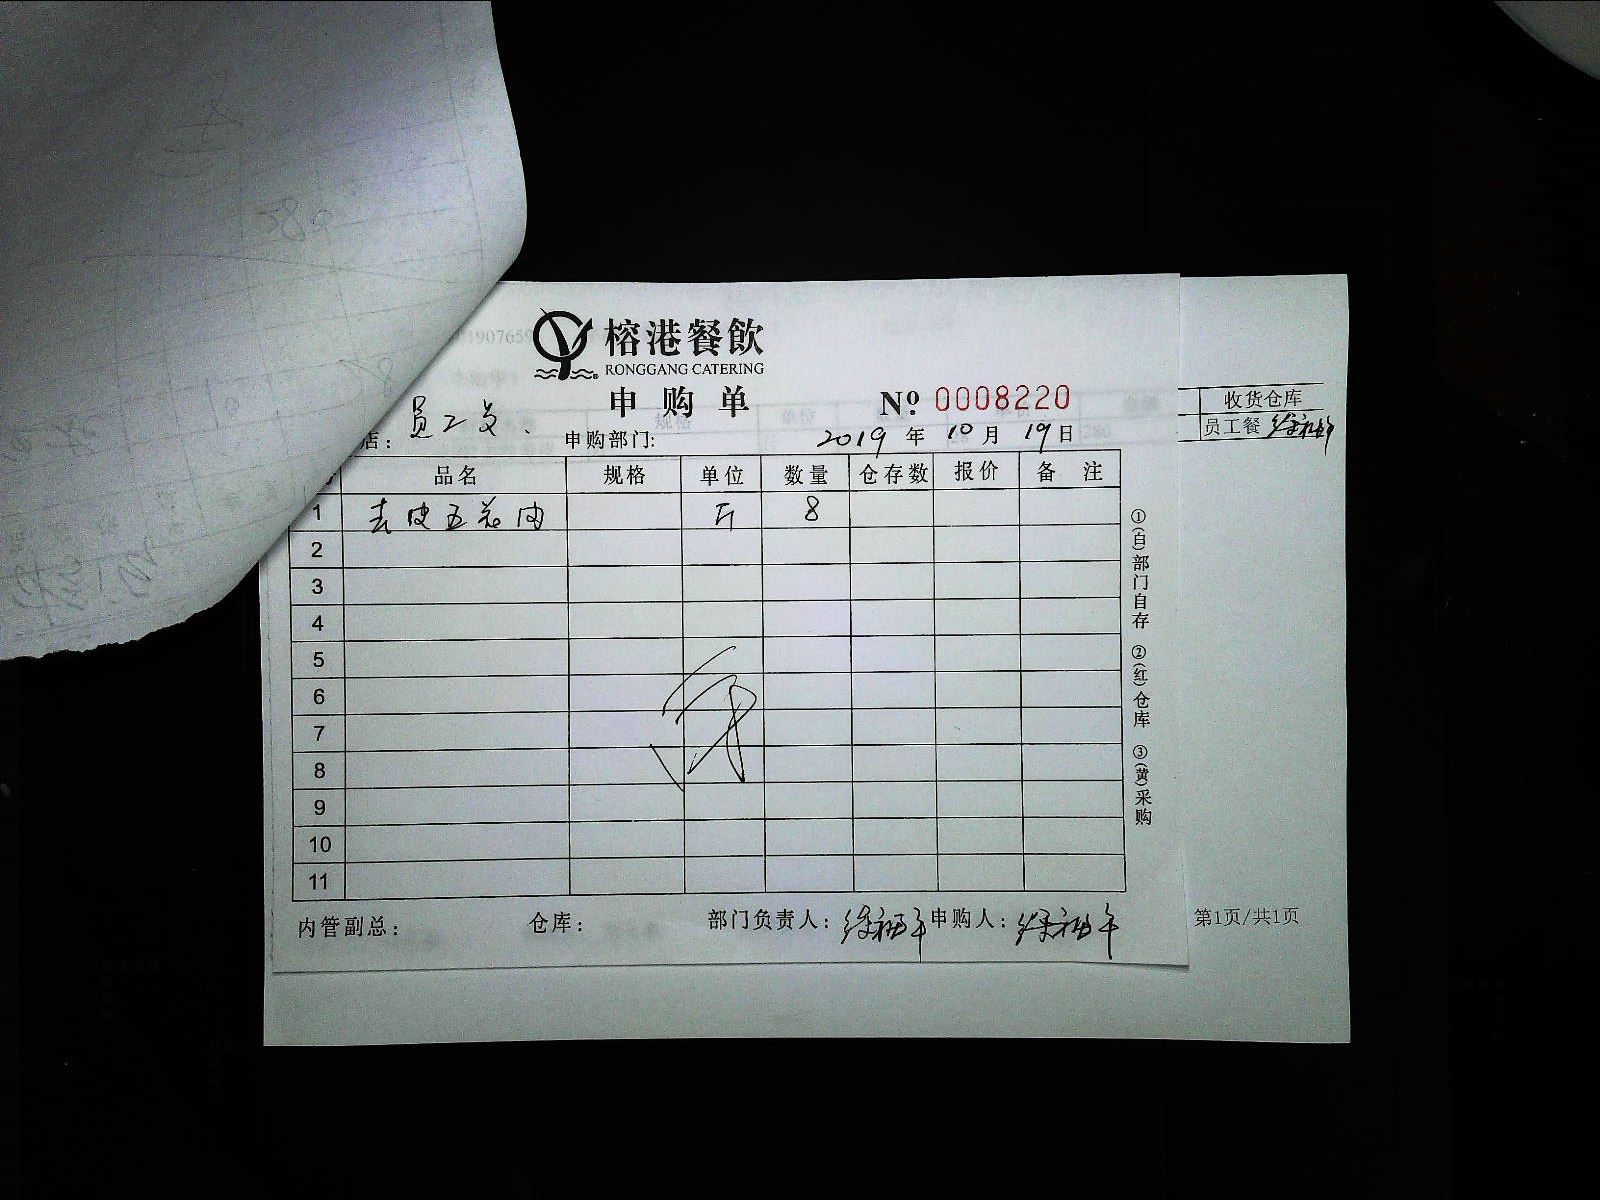 榕港餐飲
RONGGANG CATERING
申购单 Nº 0008220
店: 员工 申购部门: 2019年10月19日
品名 规格 单位 数量 仓存数 报价 备注
1 去皮五花肉 斤 8
2
3
4
5
6
7
8
9
10
11
①(白)部门自存 ②(红)仓库 ③(黄)采购
内管副总: 仓库: 部门负责人: 申购人:
收货仓库
员工餐
第1页/共1页